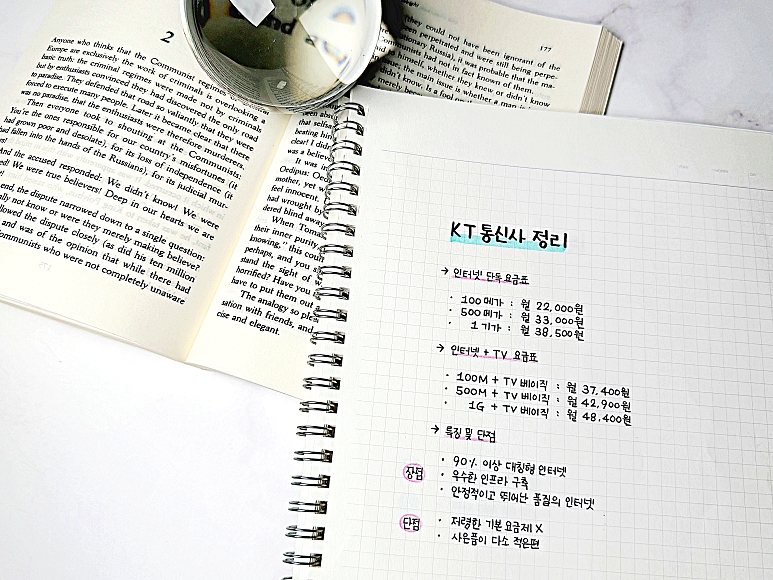 2
Anyone who thinks that the Communist regimes of Central
Europe are exclusively the work of criminals is overlooking a
basic truth: the criminal regimes were made not by criminals
but by enthusiasts convinced they had discovered the only road
to paradise. They defended that road so valiantly that they were
forced to execute many people. Later it became clear that there
was no paradise, that the enthusiasts were therefore murderers.
Then everyone took to shouting at the Communists:
You're the ones responsible for our country's misfortunes (it
had grown poor and desolate), for its loss of independence (it
had fallen into the hands of the Russians), for its judicial mur-
And the accused responded: We didn't know! We were
We were true believers! Deep in our hearts we are
end, the dispute narrowed down to a single question:
not know or were they merely making believe?
followed the dispute closely (as did his ten million
and was of the opinion that while there had
Communists who were not completely unaware
they could not have been ignorant of the
177
been perpetrated and were still being perpe-
Russia), it was probable that the ma-
had not in fact known of them.
himself, whether they knew or didn't know
the main issue is whether a man is
didn't know. Is a fool
merely
that selfsa
beating hin
clear! I did
was a believ
It was in
Oedipus: Oed
mother, yet w
feel innocent.
had wrought by
dered blind away
When Tomas
their inner purity,
knowing," this coul
perhaps, and you s
stand the sight of w
horrified? Have you
have to put them out a
The analogy so ple
sation with friends, and
cise and elegant.
KT 통신사 정리
→ 인터넷 단독 요금표
· 100 메가 : 월 22,000원
· 500 메가 : 월 33,000원
· 1 기가 : 월 38,500원
→ 인터넷 + TV 요금표
· 100M + TV 베이직 : 월 37,400원
· 500M + TV 베이직 : 월 42,900원
· 1G + TV 베이직 : 월 48,400원
→ 특징 및 단점
장점
· 90% 이상 대칭형 인터넷
· 우수한 인프라 구축
· 안정적이고 뛰어난 품질의 인터넷
단점
· 저렴한 기본 요금제 X
· 사은품이 다소 적은편